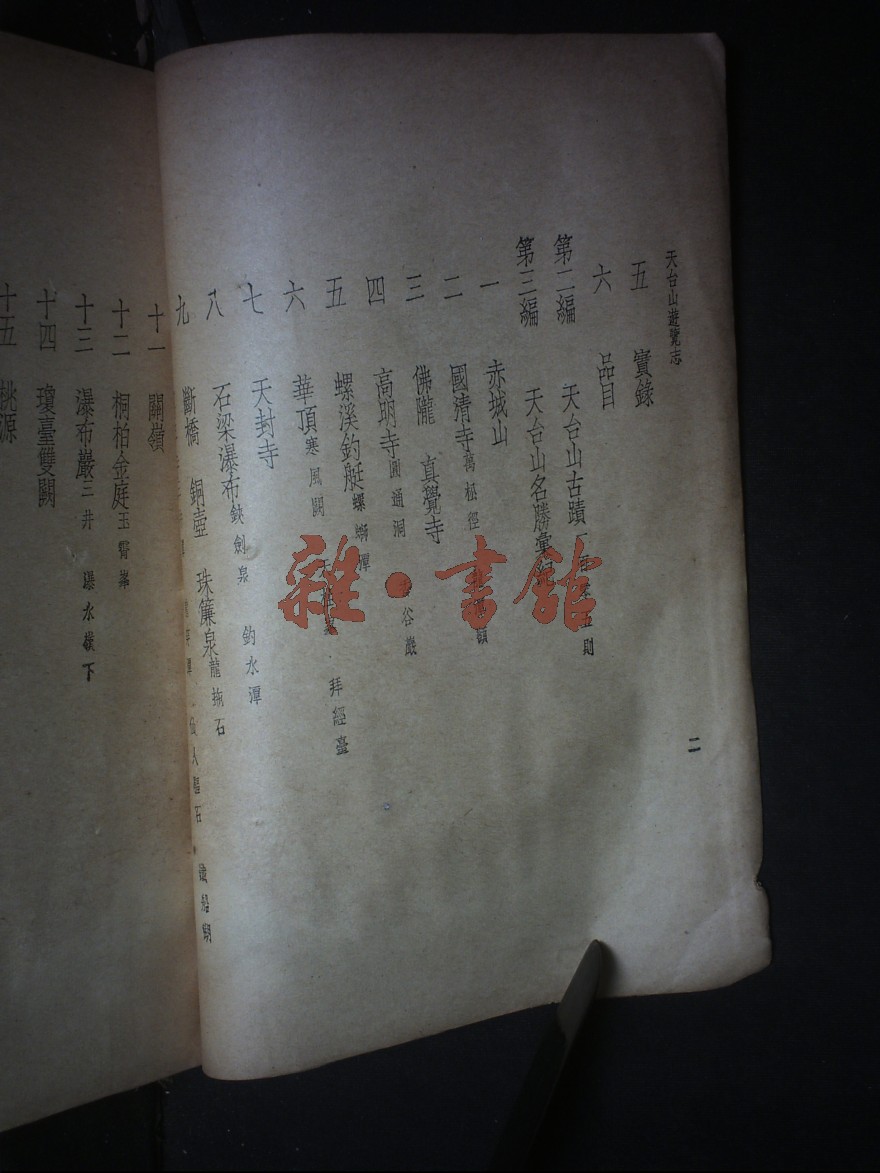 天台山遊覽志
五 實錄
六 品目
第二編 天台山古蹟 則
第三編 天台山名勝彙
一 赤城山
二 國清寺 萬松徑 嶺
三 佛隴 真覺寺
四 高明寺 圓通洞 谷巖
五 螺溪釣艇 螺螄潭
六 華頂 寒風闕 拜經臺
七 天封寺
八 石梁瀑布 鐵劍泉 釣水潭
九 斷橋 銅壺 珠簾泉 龍 石
十一 關嶺
十二 桐柏金庭 玉霄峯
十三 瀑布巖 三井 瀑水嶺下
十四 瓊臺雙闕
十五 桃源
二
雜·書館